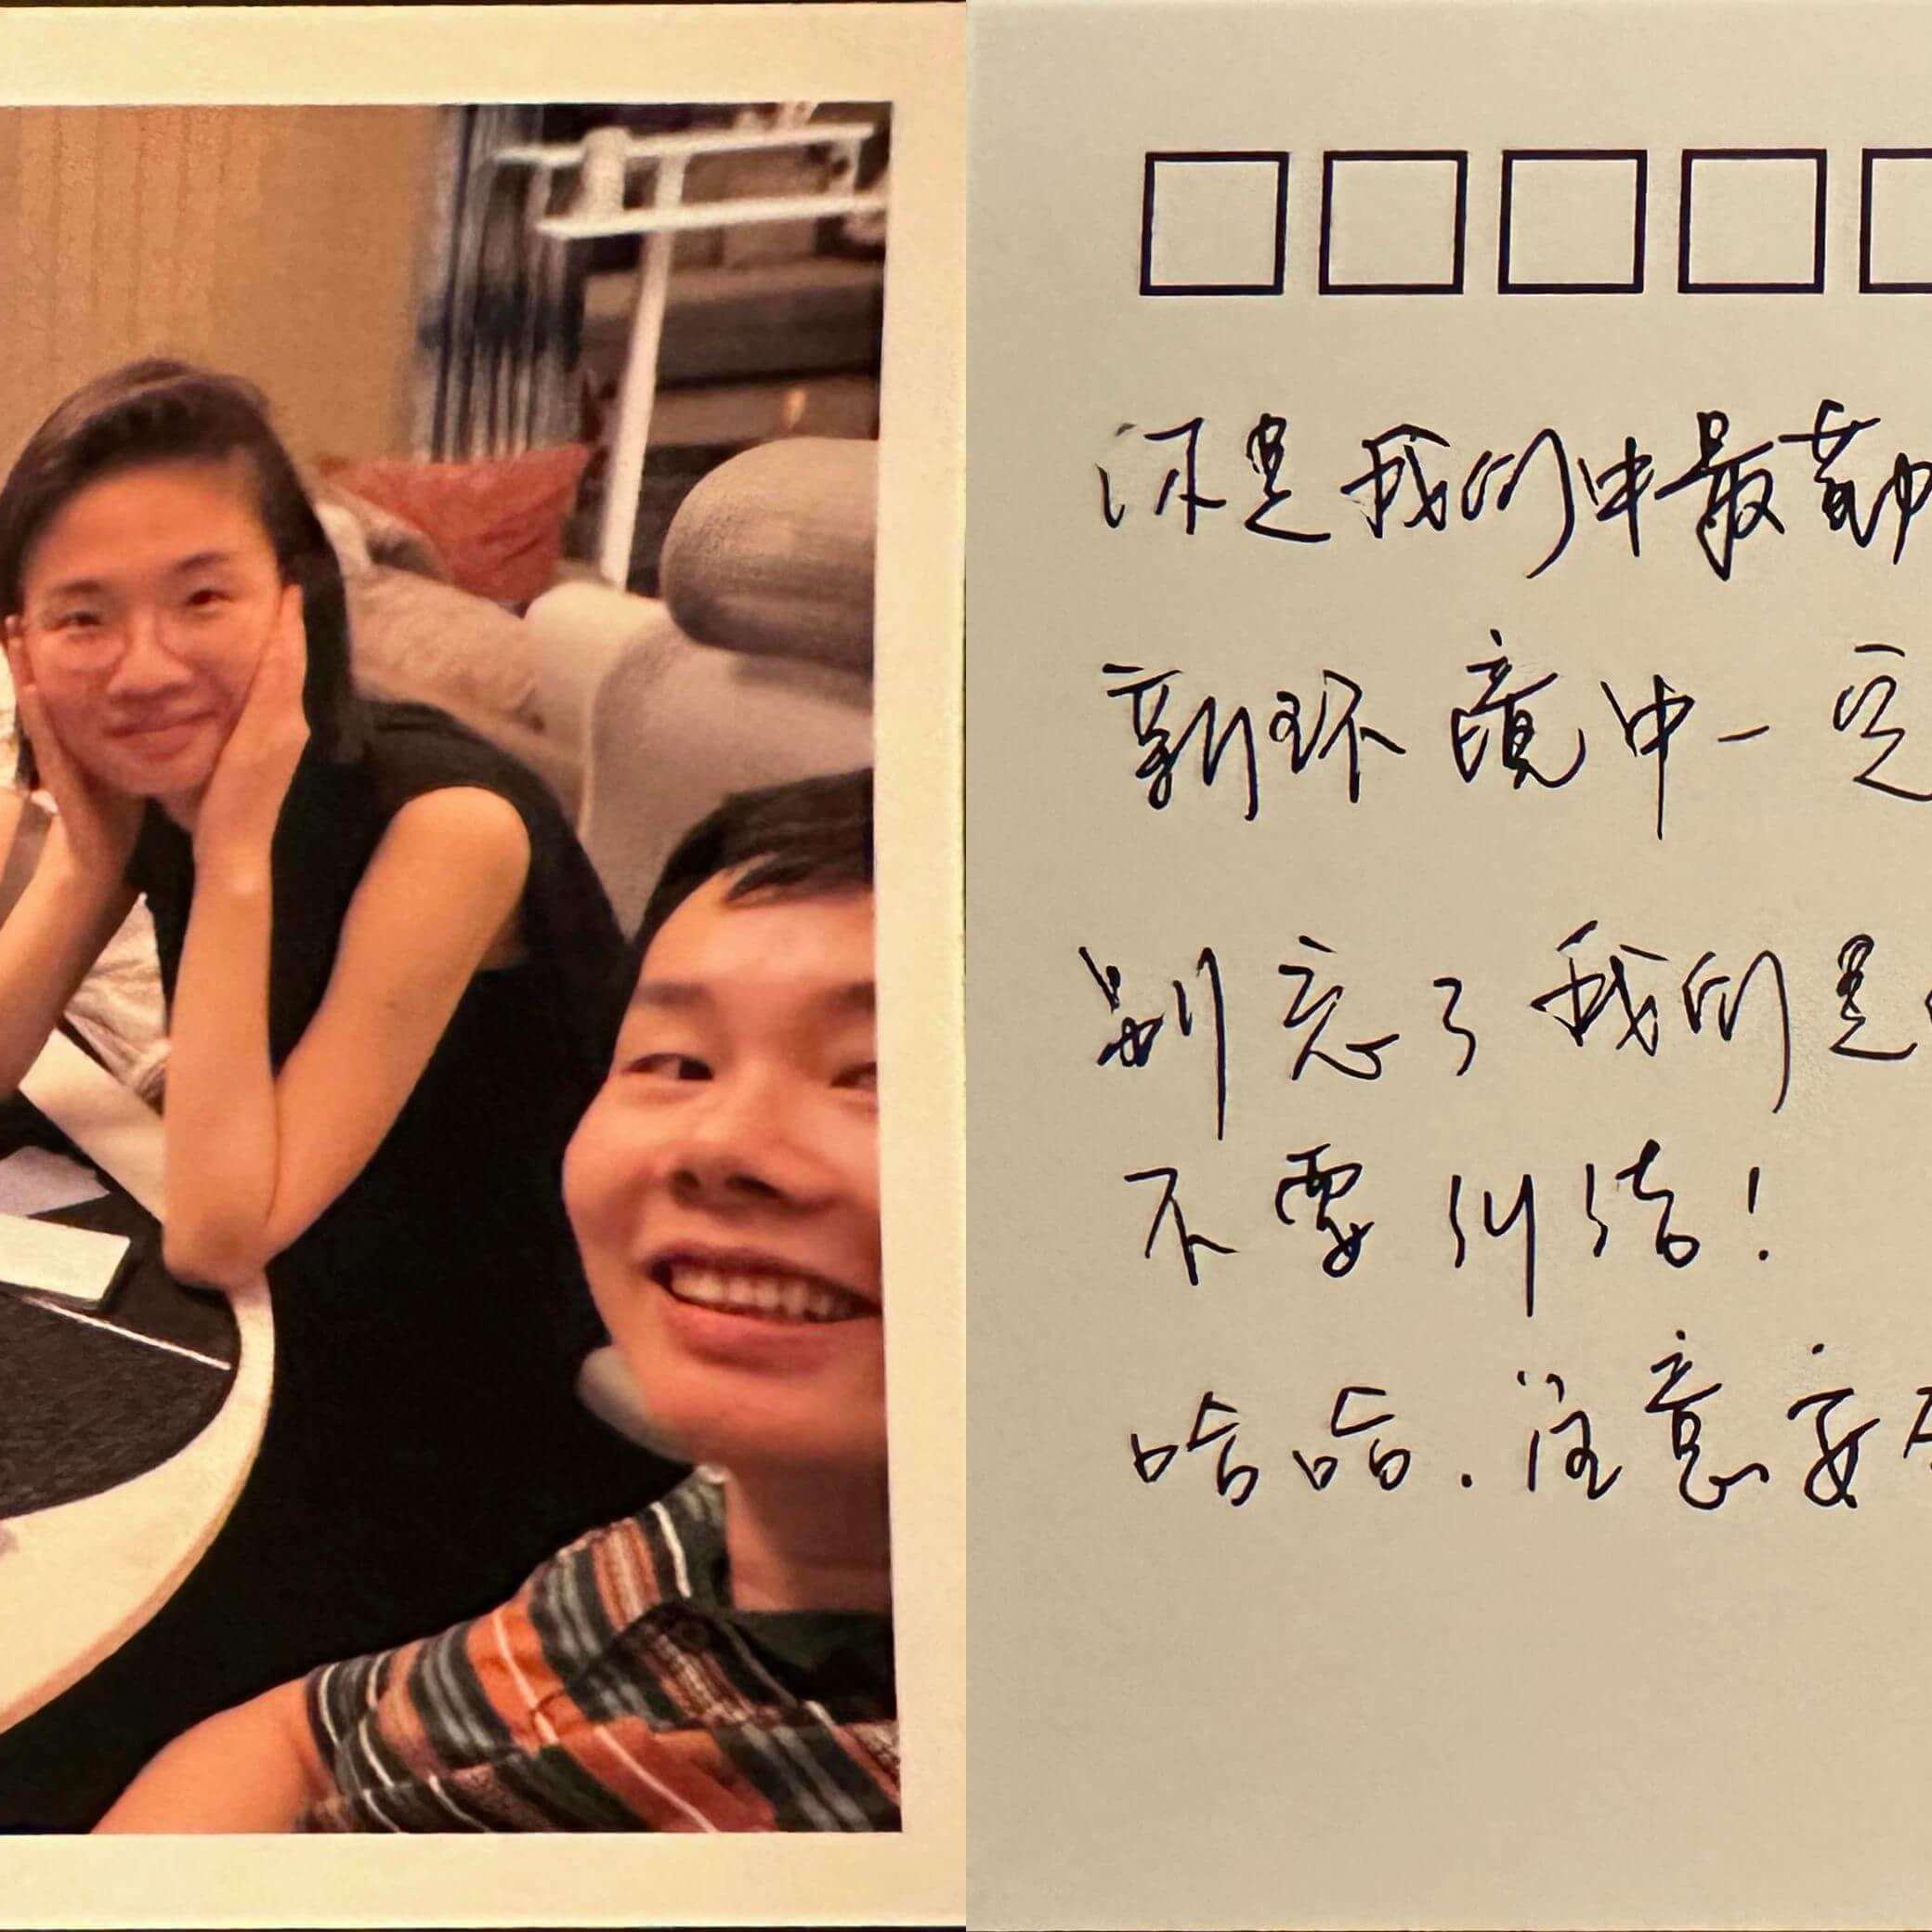 你是我们中最勤
新环境中一定
别忘了我们是
不要纠结！
哈哈.注意安